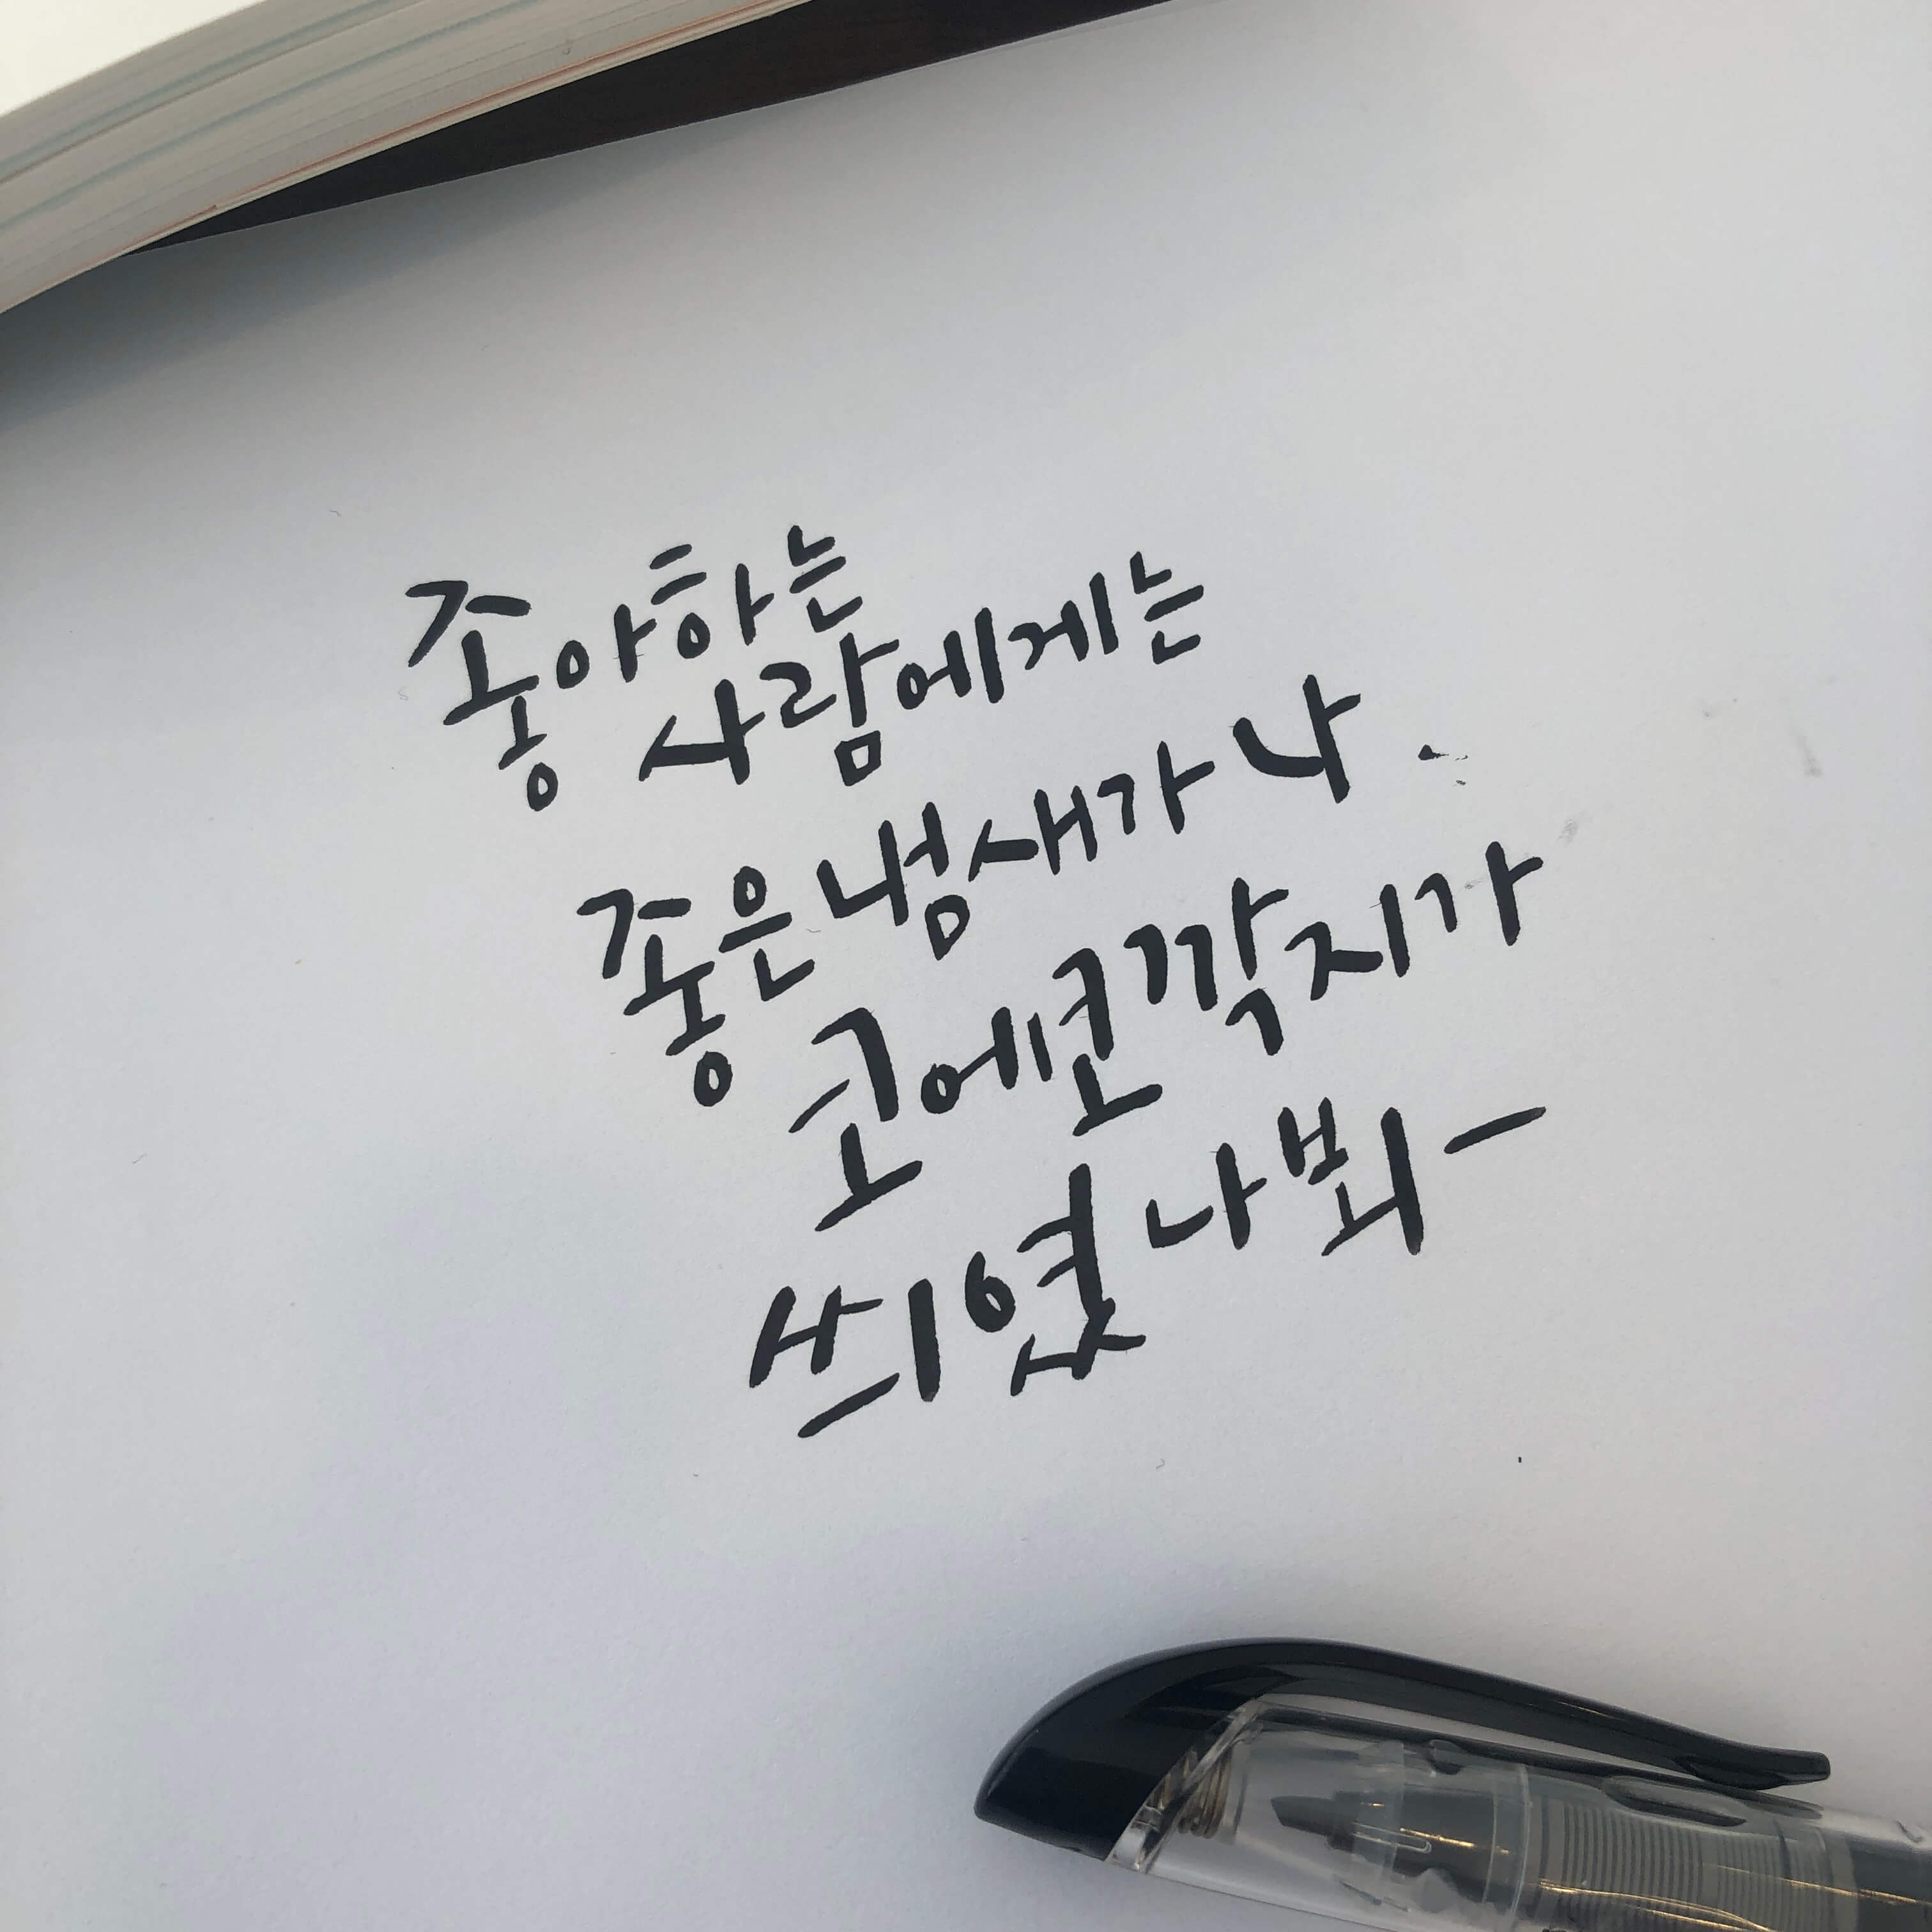 좋아하는
사람에게는
좋은 냄새가 나.
코에 콘깍지가
씌였나 봐-